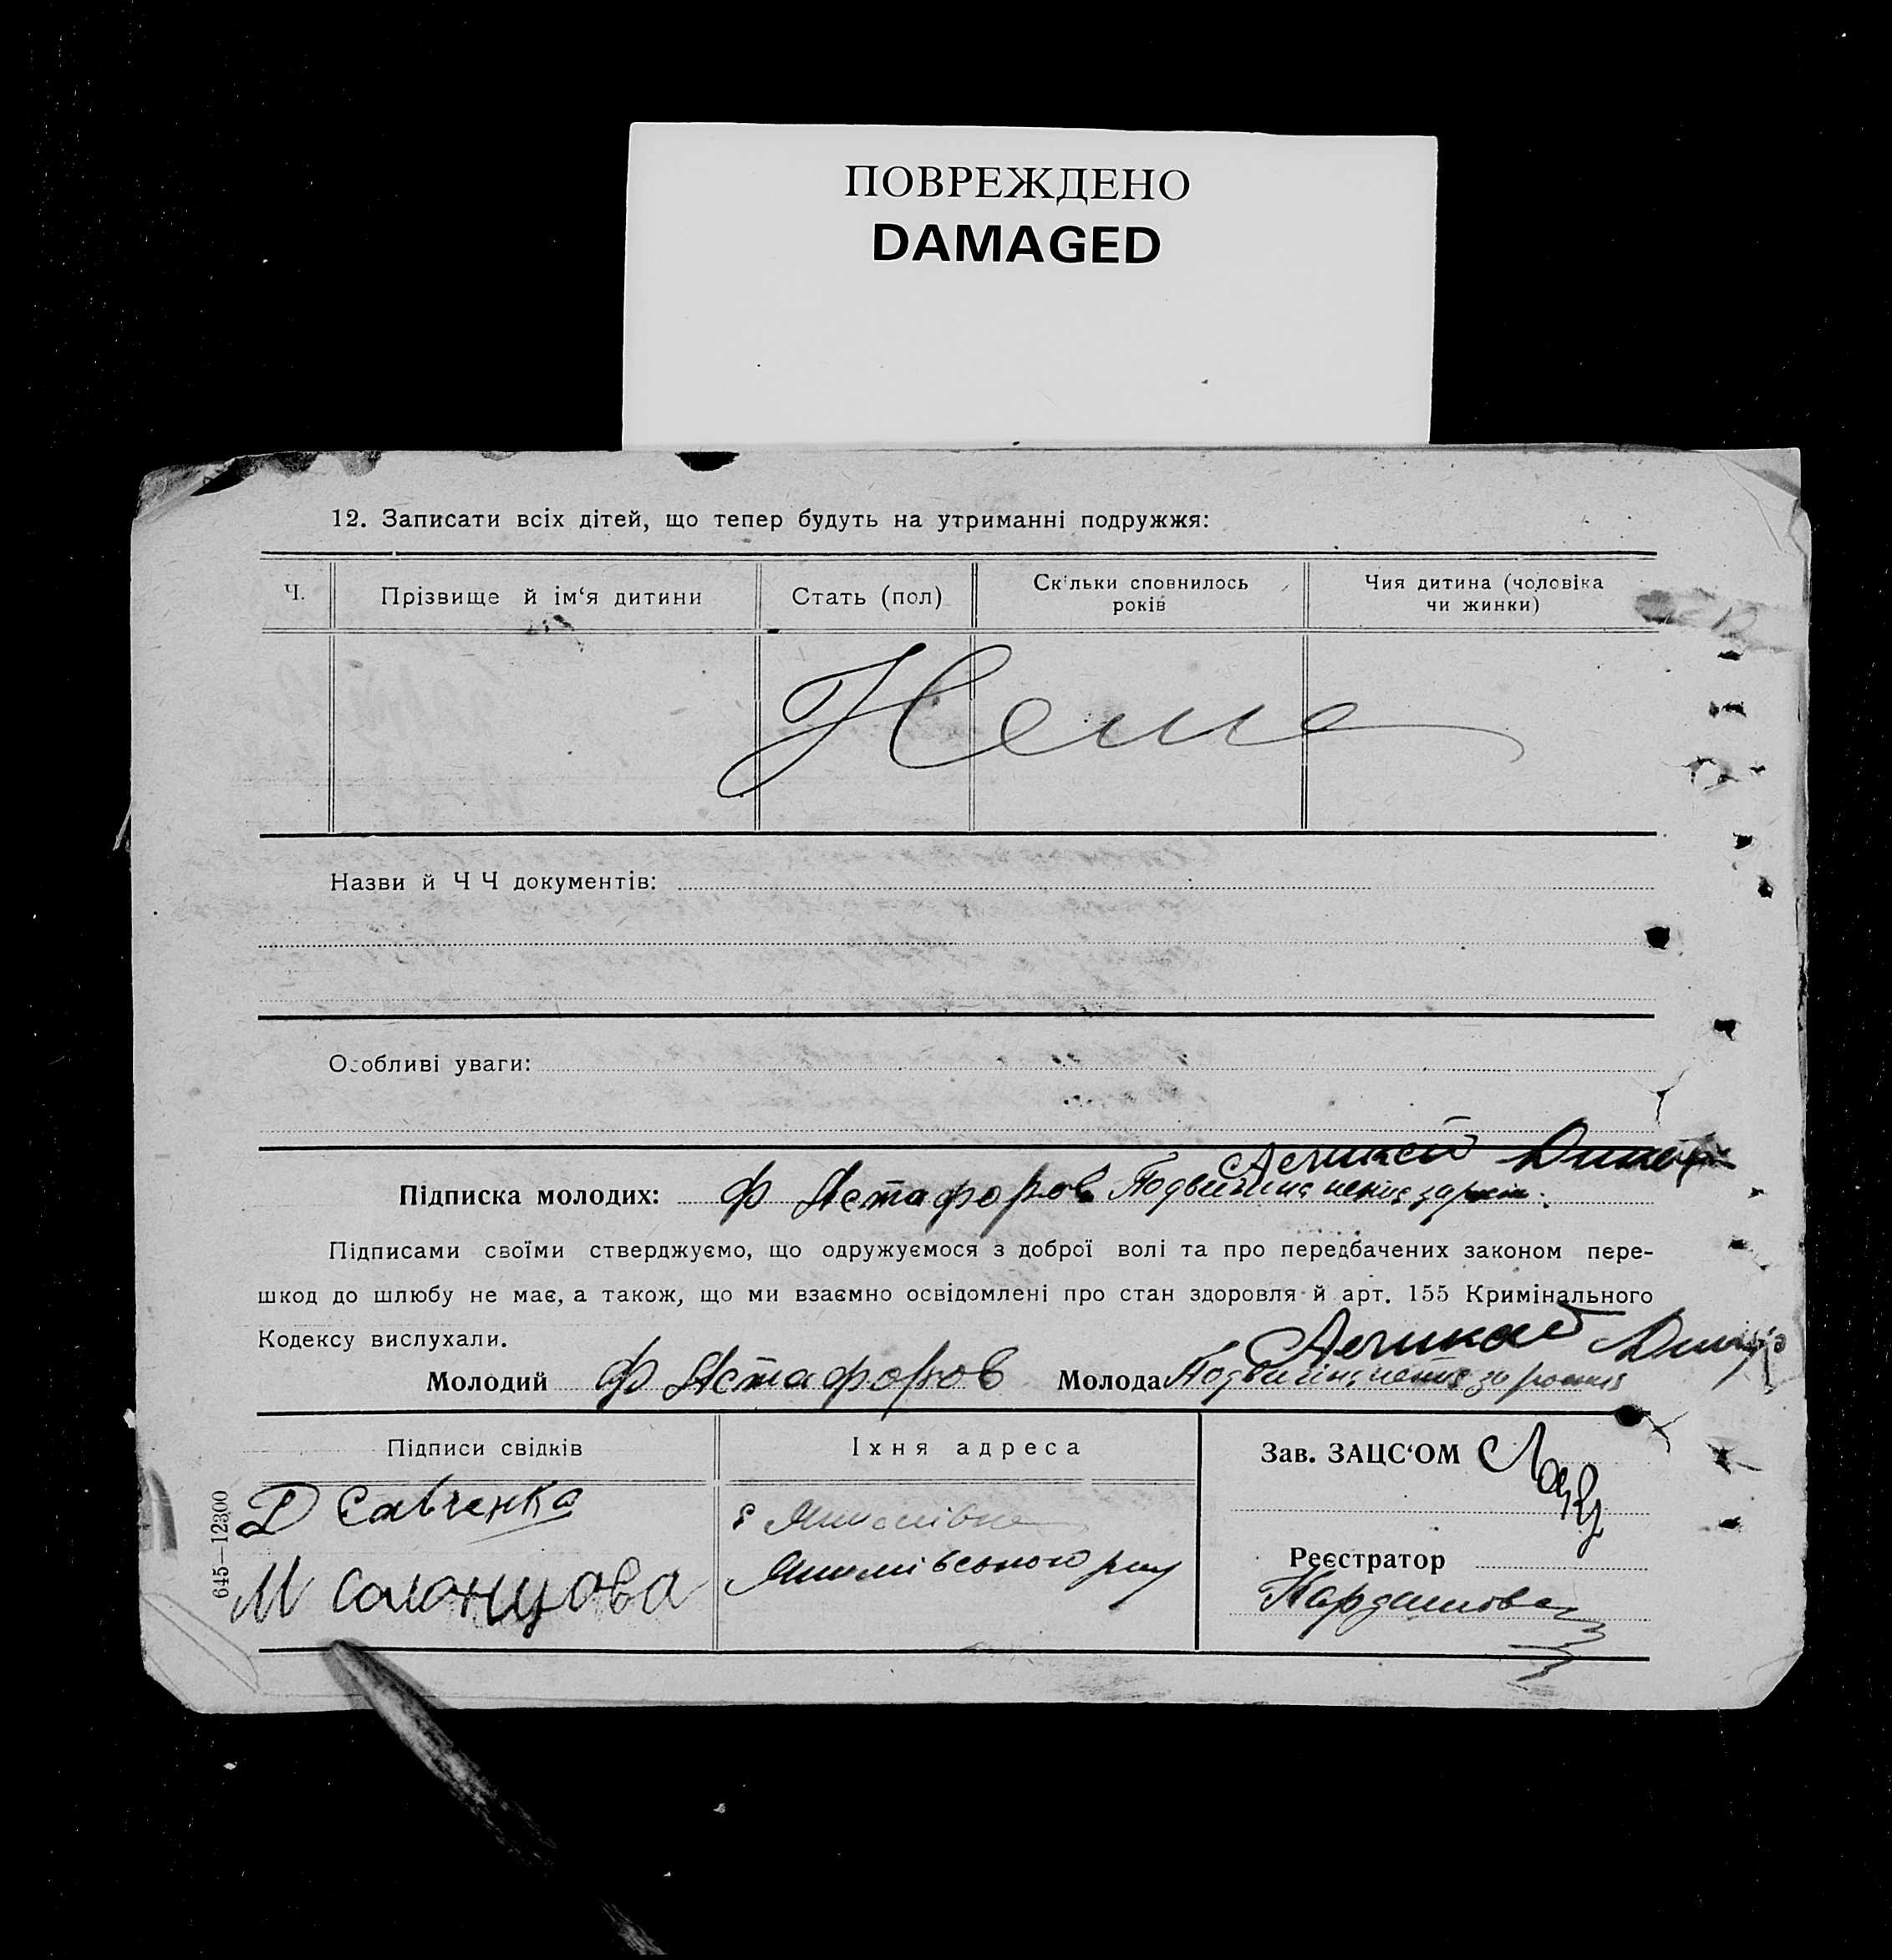 ПОВРЕЖДЕНО
DAMAGED
12. Записати всіх дітей, що тепер будуть на утриманні подружжя:
Ч.
Прізвище й ім‘я дитини
Стать (пол)
Скільки сповнилось
років
Чия дитина (чоловіка
чи жинки)
Нема
Назви й Ч Ч документів:
Особливі уваги:
Підписка молодих: Ф Астафоров Подвигина
Підписами своїми стверджуємо, що одружуємося з доброї волі та про передбачених законом пере-
шкод до шлюбу не має, а також, що ми взаємно освідомлені про стан здоровля й арт. 155 Кримінального
Кодексу вислухали.
Молодий Ф Астафоров Молода Подвигина
Підписи свідків
Їхня адреса
Зав. ЗАЦС‘ОМ
Д Савченко
М Солонцова
Реєстратор
645—12300